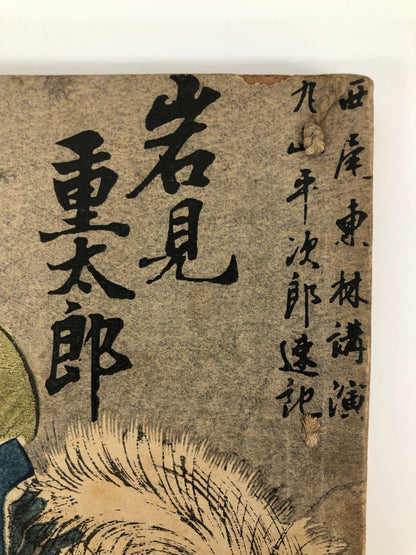 西尾東林講演
丸山平次郎速記
岩見
重太郎